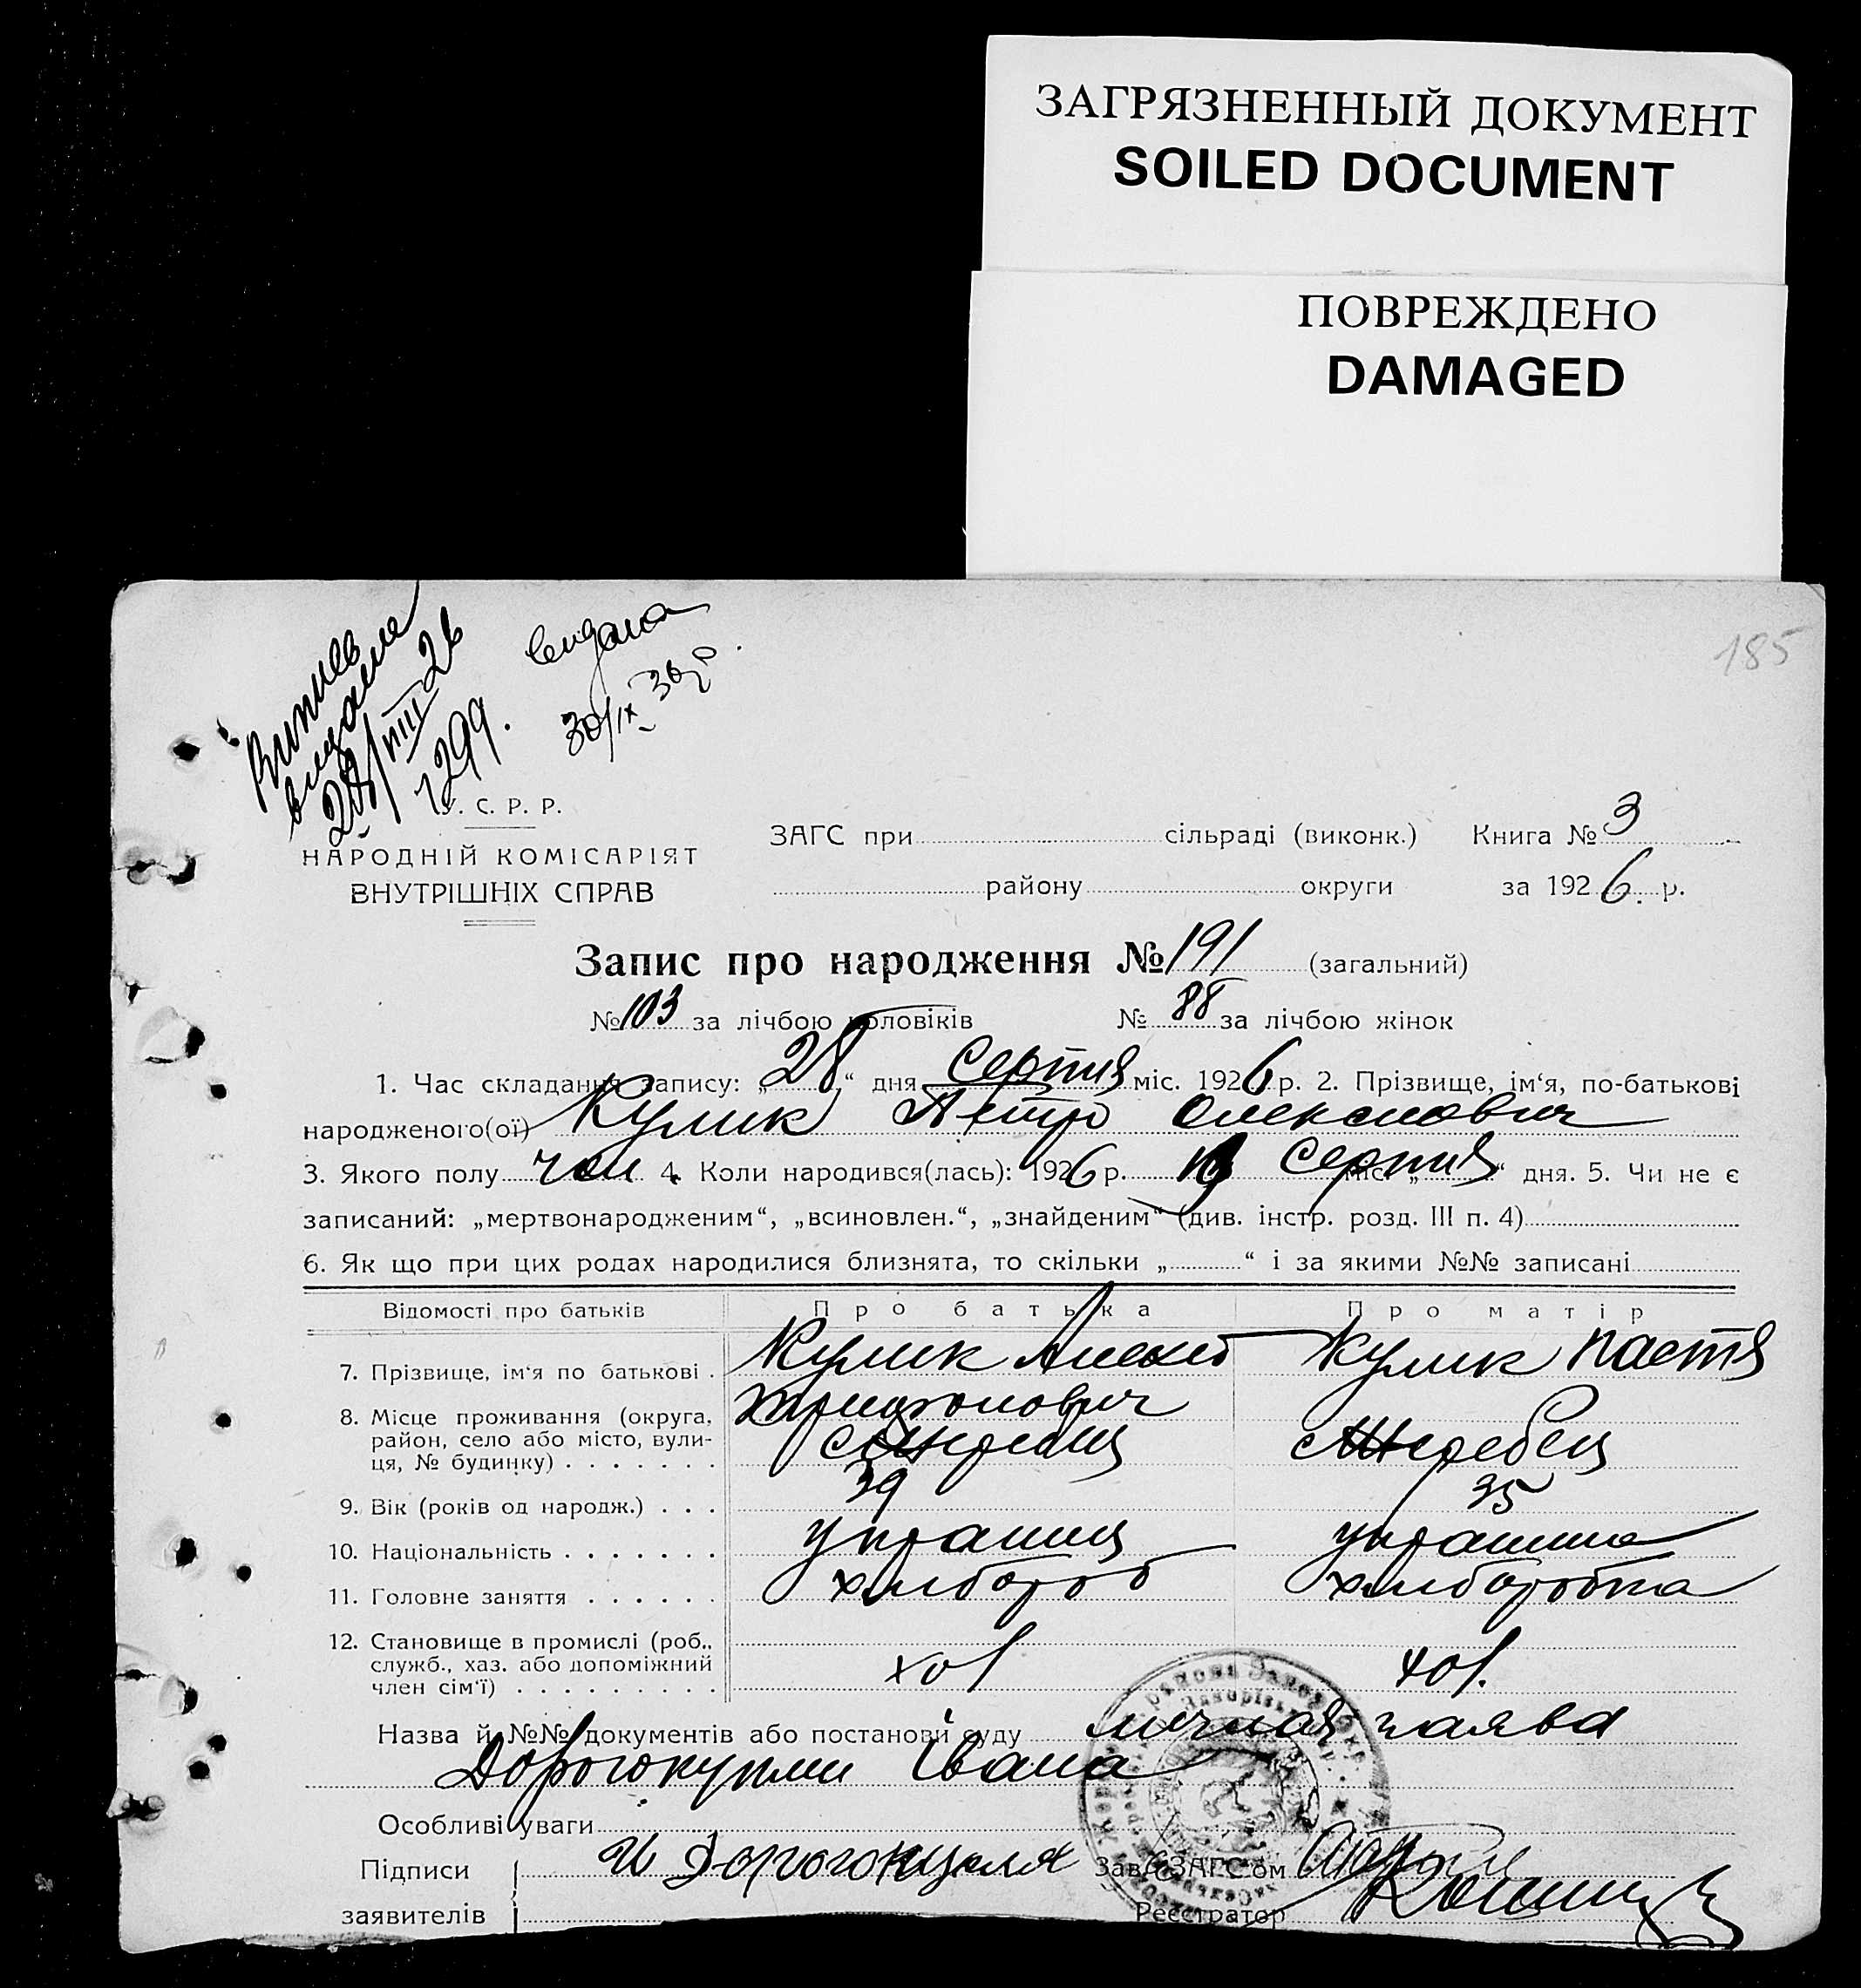 ЗАГРЯЗНЕННЫЙ ДОКУМЕНТ
SOILED DOCUMENT
ПОВРЕЖДЕНО
DAMAGED
185
видана
30/IX 36 р.
28/VIII 26
1299.
У. С. Р. Р.
НАРОДНІЙ КОМІСАРІЯТ
ВНУТРІШНІХ СПРАВ
ЗАГС при сільраді (виконк.) Книга № 3
району округи за 1926 р.
Запис про народження № 191 (загальний)
№ 103 за лічбою чоловіків № 88 за лічбою жінок
1. Час складання запису: „28“ дня Серпня міс. 1926 р. 2. Прізвище, ім‘я, по-батькові
народженого(ої) Кулик Петро Олексиович
3. Якого полу чол 4. Коли народився(лась): 1926 р. Серпня міс. „ “ дня. 5. Чи не є
записаний: „мертвонародженим“, „всиновлен.“, „знайденим“ (див. інстр. розд. III п. 4)
6. Як що при цих родах народилися близнята, то скільки „ “ і за якими №№ записані
Відомості про батьків Про батька Про матір
7. Прізвище, ім‘я по батькові . Кулик Кулик Настя
8. Місце проживання (округа,
район, село або місто, вули-
ця, № будинку) . . . . . . . Жеребец
9. Вік (років од народж.) . . . 39 35
10. Національність . . . . . . . украинец украинка
11. Головне заняття . . . . . . хлібороб хлiборобка
12. Становище в промислі (роб.,
служб., хаз. або допоміжний
член сім‘ї) . . . . . . . . .
Назва й №№ документів або постанови суду личная заява
Дорогокупли Івана
Особливі уваги
Підписи И Дорогокупля Зав. ЗАГС‘ом
заявителів Реєстратор